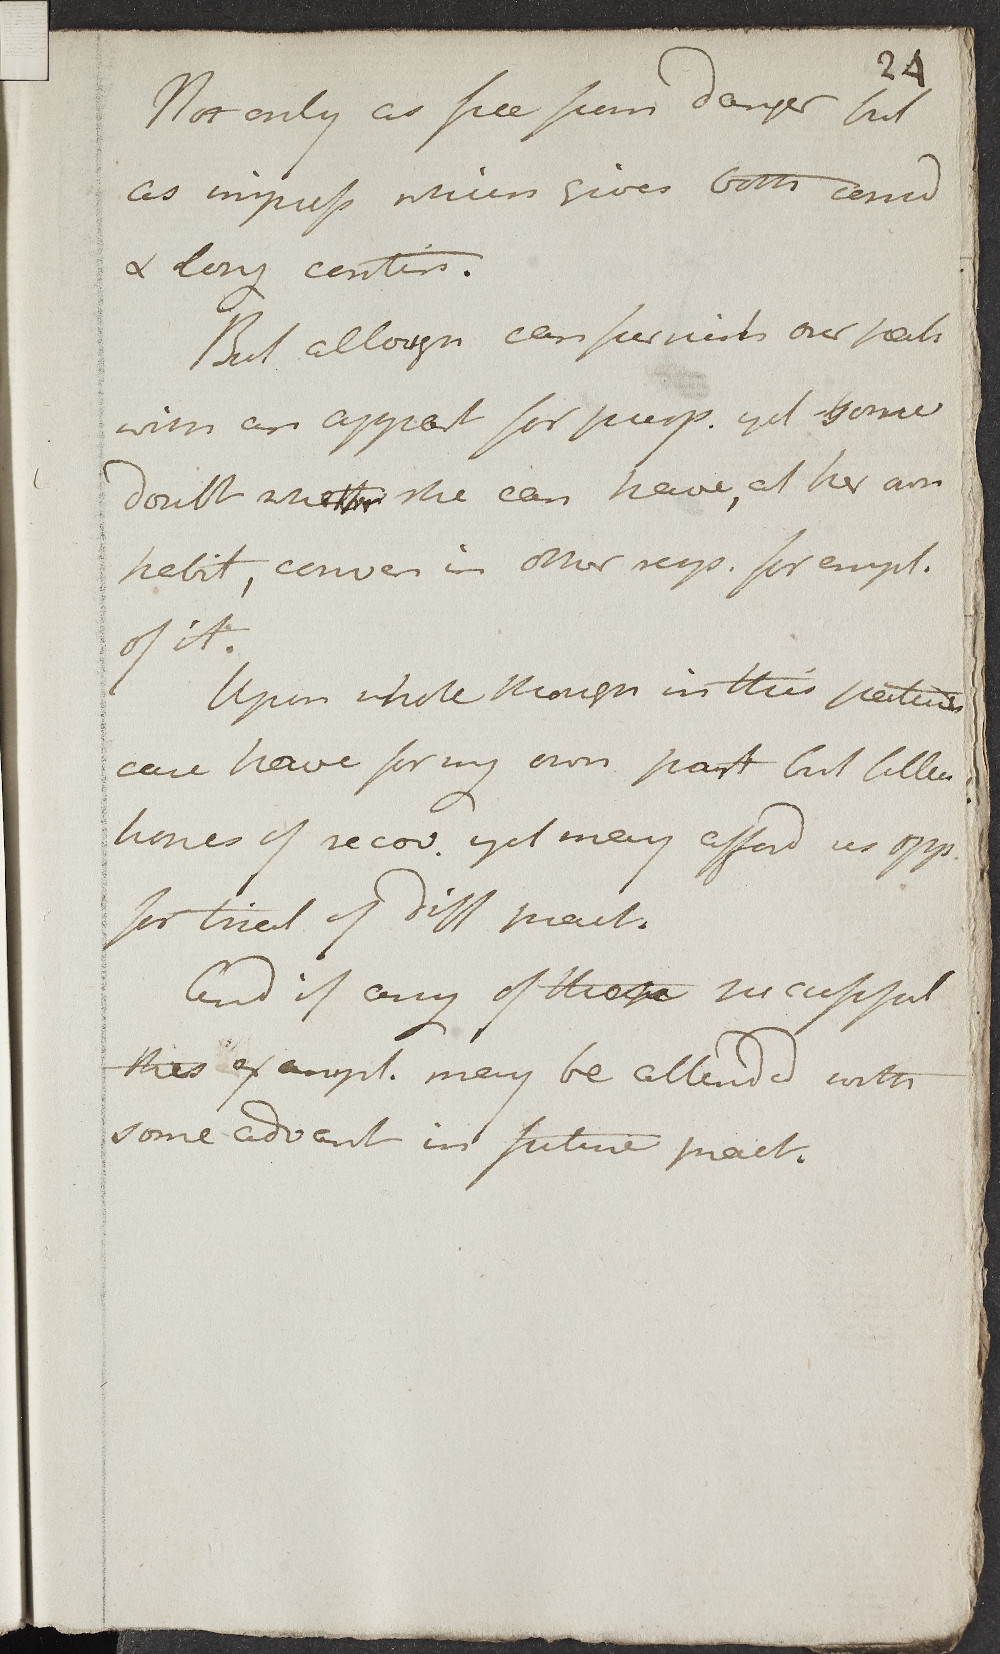 24
Not only as free from danger but
as impress which gives both cons͏d
& long contin.
But allough can furnish our pat
with an apparat for purp. yet some
doubt whether she can have, at her own
habit, conven in other resp. for empl.
of it.
Upon whole though in this particular
case have for my own part but little
hopes of recov. yet may afford us opp.
for trial of diff pract.
And if any of these successful
this exampl. may be attended with
some advant in future pract.